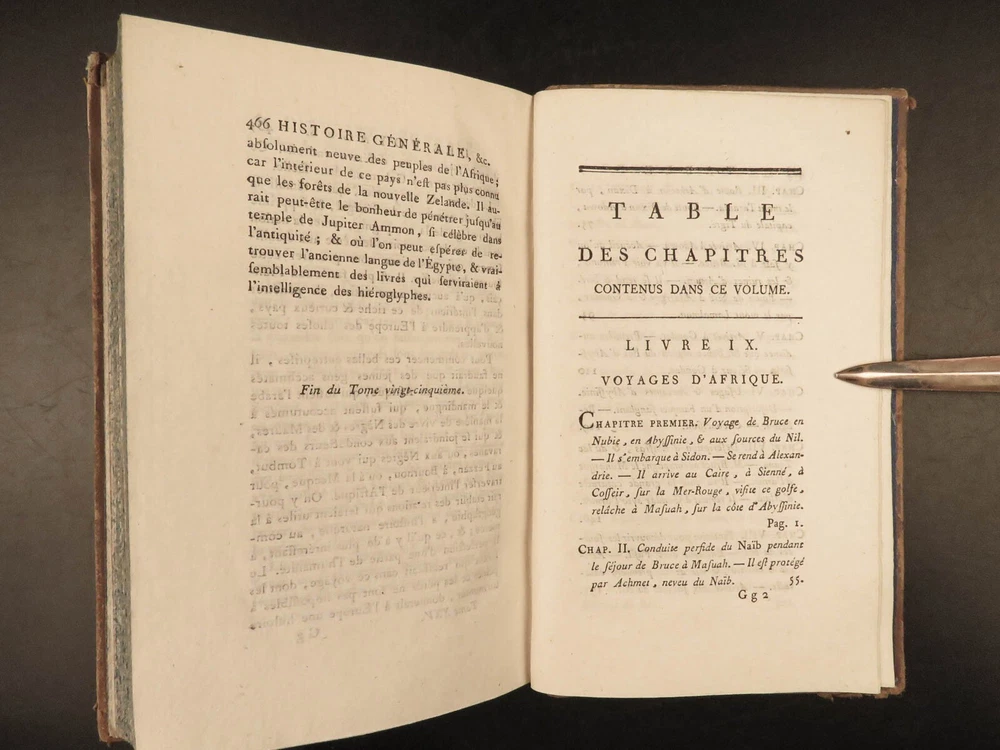 466 HISTOIRE GÉNÉRALE, &c.
absolument neuve des peuples de l'Afrique;
car l'intérieur de ce pays n'eſt pas plus connu
que les forêts de la nouvelle Zelande. Il au-
rait peut-être le bonheur de pénétrer juſqu'au
temple de Jupiter Ammon, ſi célèbre dans
l'antiquité; & où l'on peut eſpérer de re-
trouver l'ancienne langue de l'Égypte, & vrai-
ſemblablement des livres qui ſerviraient à
l'intelligence des hiéroglyphes.
Fin du Tome vingt-cinquième.
TABLE
DES CHAPITRES
CONTENUS DANS CE VOLUME.
LIVRE IX.
VOYAGES D'AFRIQUE.
CHAPITRE PREMIER. Voyage de Bruce en
Nubie, en Abyſſinie, & aux ſources du Nil.
— Il s'embarque à Sidon. — Se rend à Alexan-
drie. — Il arrive au Caire, à Sienné, à
Coſſeir, ſur la Mer-Rouge, viſite ce golfe,
relâche à Maſuah, ſur la côte d'Abyſſinie.
Pag. 1.
CHAP. II. Conduite perfide du Naïb pendant
le ſéjour de Bruce à Maſuah. — Il eſt protégé
par Achmet, neveu du Naïb. 55.
Gg2